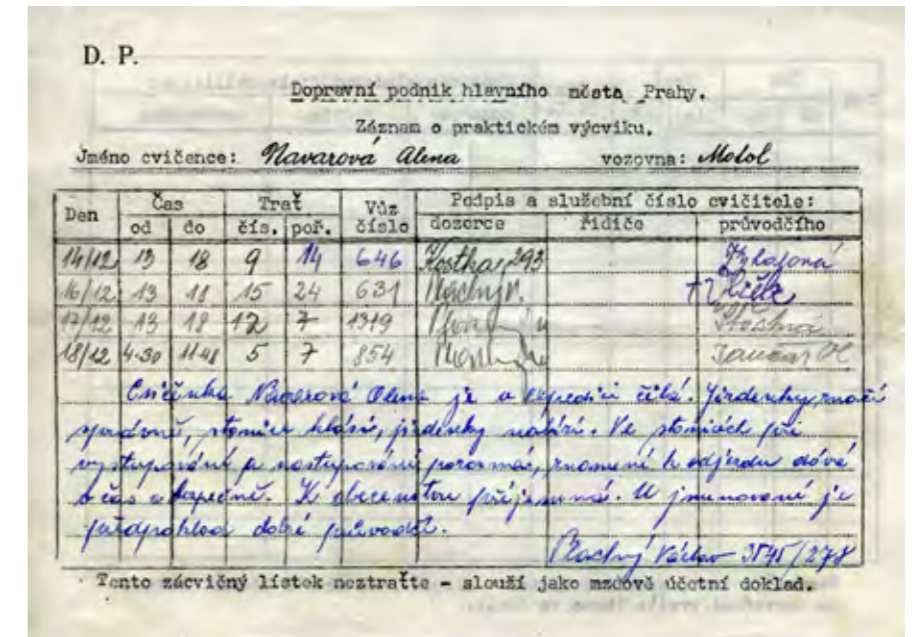 D. P.
Dopravní podnik hlavního města Prahy.
Záznam o praktickém výcviku.
Jméno cvičence: Navarová Alena vozovna: Motol
Den Čas Trať Vůz číslo Podpis a služební číslo cvičitele:
od do čís. poř. dozorce řidiče průvodčího
14/12 13 18 9 14 646 Kostka 293
16/12 13 18 15 24 631
17/12 13 18 12 7 1319
18/12 4·30 11·48 5 7 854
Cvičenka Navarová Alena je v expedici čilá. Jízdenky značí
správně, stanice hlásí, jízdenky nabízí. Ve stanicích při
vystupování a nastupování pozorná, znamení k odjezdu dává
včas a bezpečně. K obecenstvu příjemná. U jmenované je
předpoklad dobré průvodčí.
Plachý Václav 3545/278
Tento zácvičný lístek neztraťte - slouží jako mzdově účetní doklad.